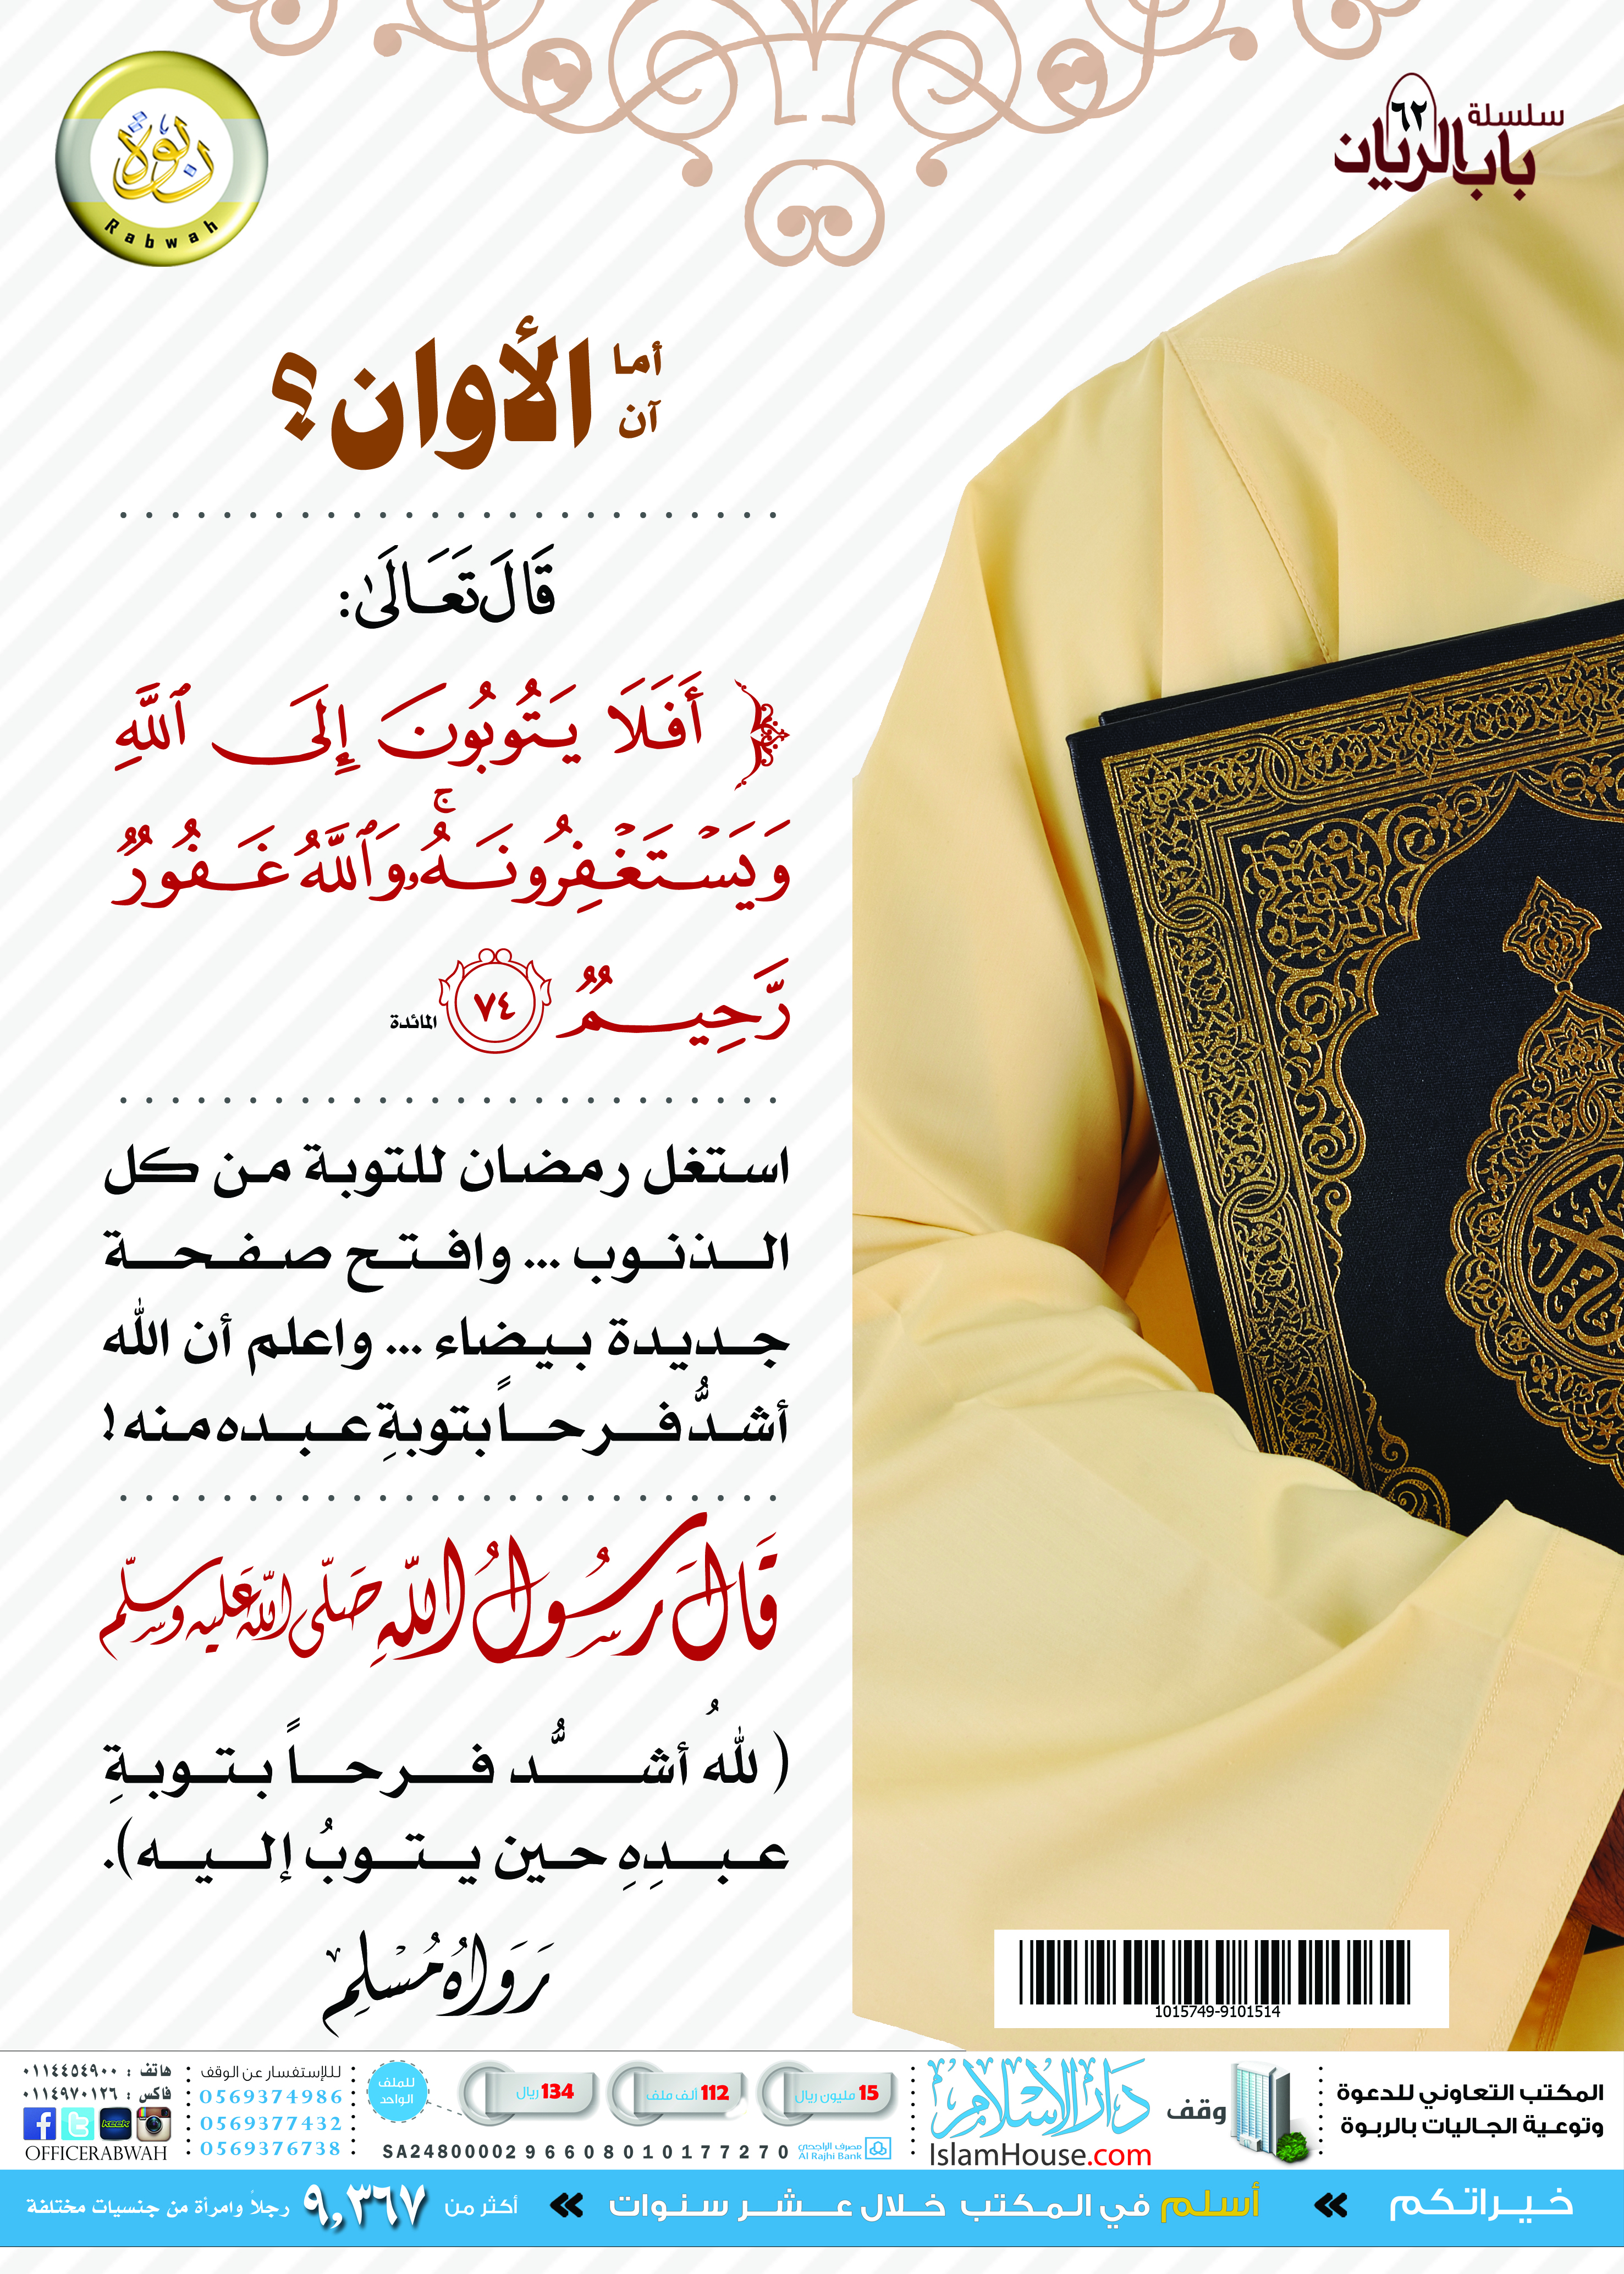 سلسلة
٦٢
باب الريان
ربوة
Rabwah
أما
آن
الأوان؟
قَالَ تَعَالَىٰ:
﴿ أَفَلَا يَتُوبُونَ إِلَى ٱللَّهِ
وَيَسۡتَغۡفِرُونَهُۥۚ وَٱللَّهُ غَفُورٞ
رَّحِيمٞ ٧٤ المائدة
استغل رمضان للتوبة من كل
الذنوب ... وافتح صفحة
جديدة بيضاء ... واعلم أن الله
أشدُّ فرحاً بتوبةِ عبده منه !
قَالَ رَسُولُ اللَّهِ صَلَّى اللَّه عَليه وسلّم
( للهُ أشدُّ فرحاً بتوبةِ
عبدِهِ حين يتوبُ إليه).
رَوَاهُ مُسْلِم
1015749-9101514
المكتب التعاوني للدعوة
وتوعية الجاليات بالربوة
وقف
دار الإسلام
IslamHouse.com
15 مليون ريال
112 ألف ملف
134 ريال
للملف
الواحد
مصرف الراجحي
Al Rajhi Bank
SA2480000296608010177270
لللإستفسار عن الوقف
0569374986
0569377432
0569376738
هاتف : ٠١١٤٤٥٤٩٠٠
فاكس : ٠١١٤٩٧٠١٢٦
keek
OFFICERABWAH
خيراتكم » أسلم في المكتب خلال عشر سنوات » أكثر من ٩,٣٦٧ رجلاً وامرأة من جنسيات مختلفة